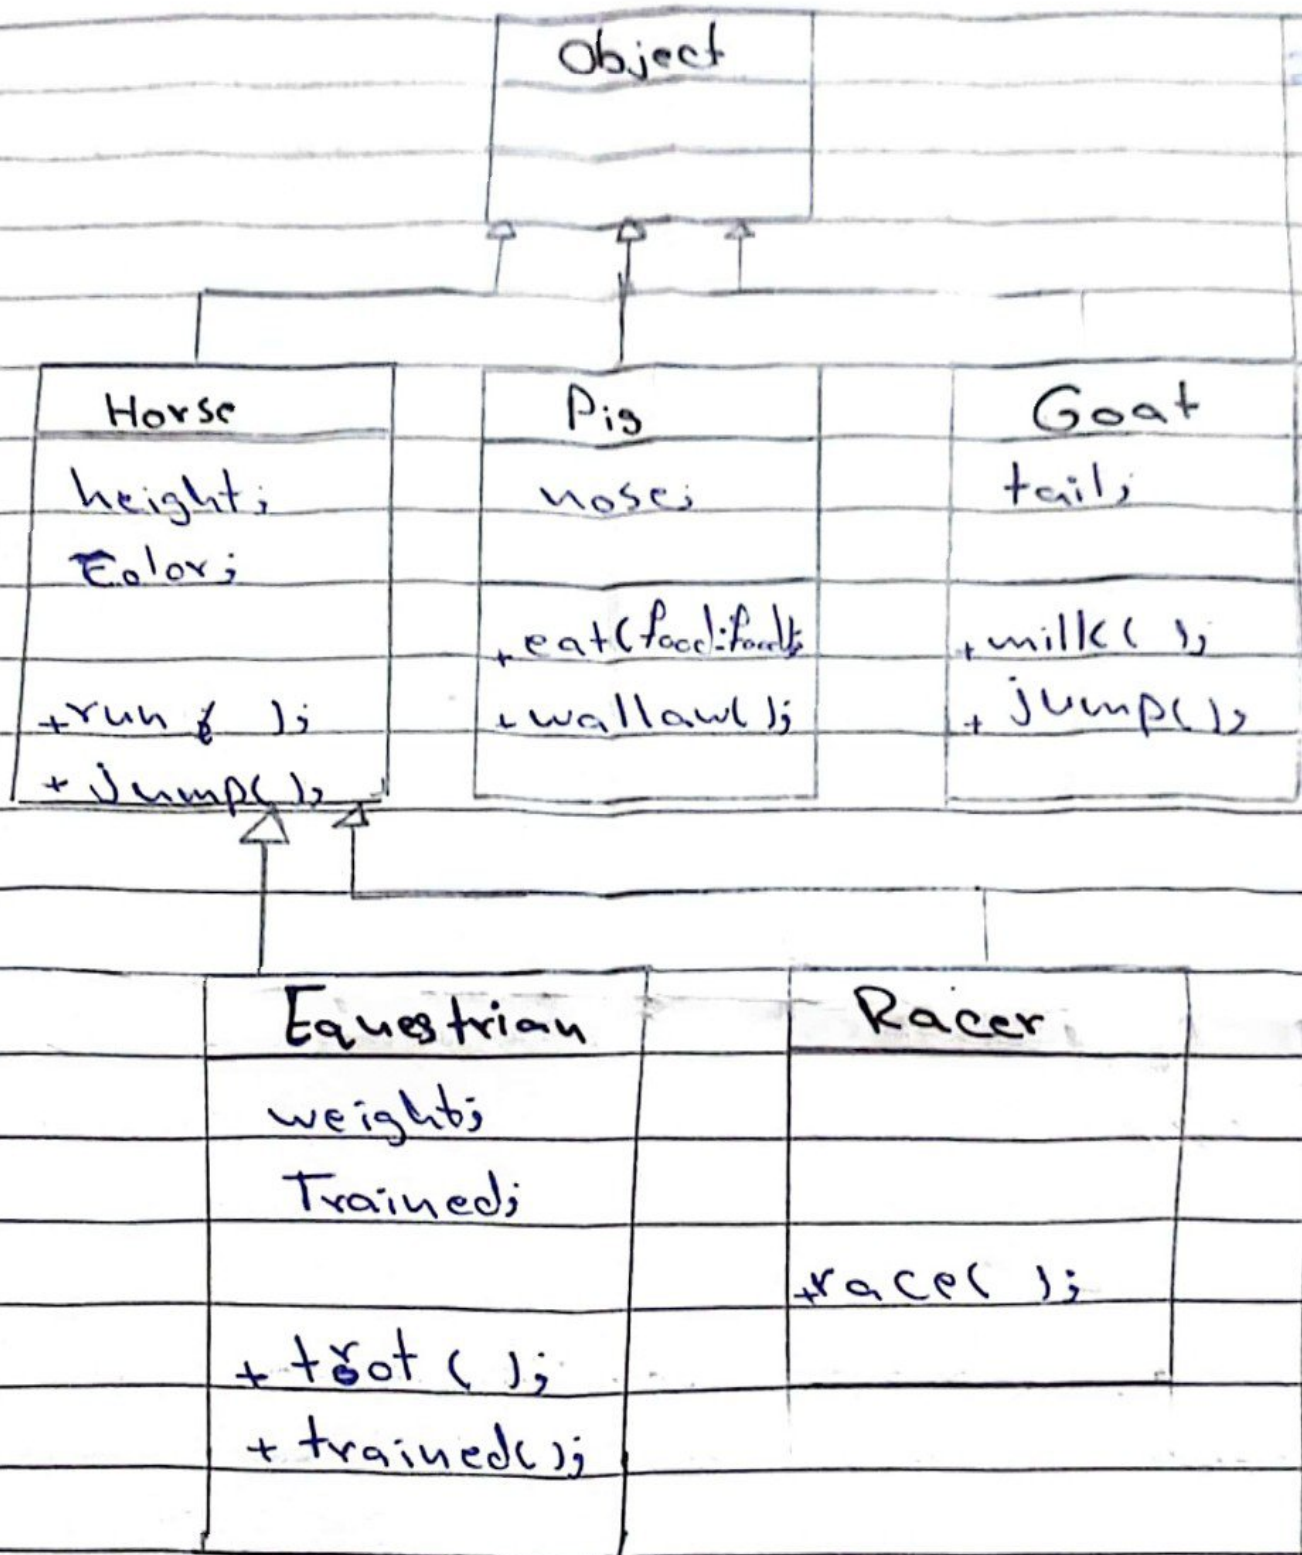 Object
Horse
height;
Color;
+run( );
+ jump();
Pig
nose;
+eat(food:food);
+wallaw();
Goat
tail;
+milk( );
+ jump();
Equestrian
weight;
Trained;
+ trot ( );
+ trained();
Racer
+race( );